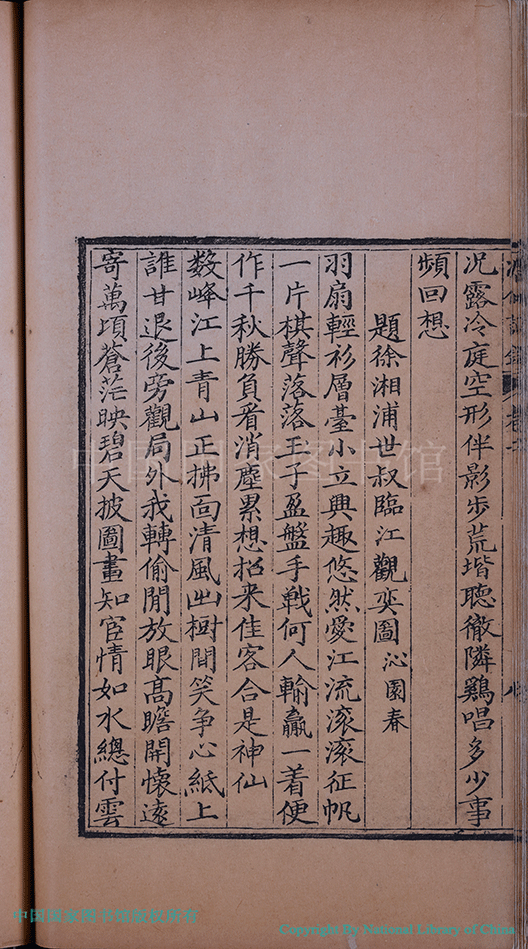 况露冷庭空形伴影步荒堦聽徹隣鷄唱多少事
頻回想
題徐湘浦世叔臨江觀奕圖 沁園春
羽扇輕衫層臺小立興趣悠然愛江流滚滚征帆
一片棋聲落落玉子盈盤手戰何人輸贏一着便
作千秋勝負看消塵累想招來佳客合是神仙
数峰江上青山正拂面清風出樹間笑争心紙上
誰甘退後旁觀局外我轉偷閒放眼高瞻開懷遠
寄萬頃蒼茫映碧天披圖畫知宦情如水總付雲
中国国家图书馆
中国国家图书馆版权所有
Copyright By National Library of China